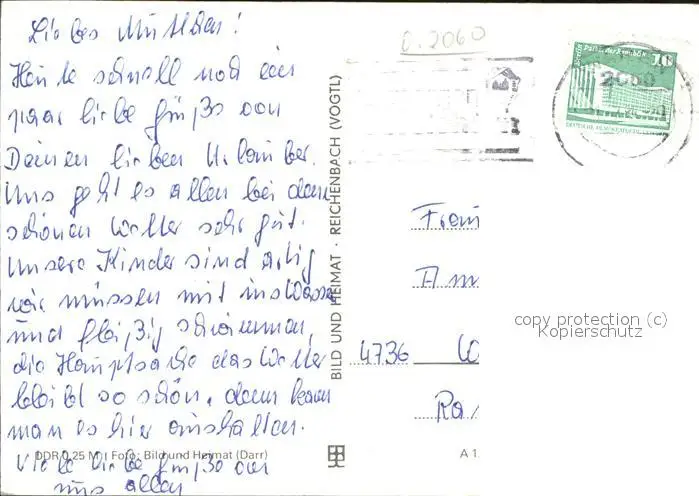 Liebes Muttchen!
Heute schnell noch ein
paar liebe Grüße von
Deinen lieben Urlauber.
Uns geht es allen bei dem
schönen Wetter sehr gut.
Unsere Kinder sind artig
wir müssen mit ins Wasser
und fleißig schwimmen,
die Hauptsache das Wetter
bleibt so schön, dann kann
man es hier aushalten.
Viele liebe Grüße von
uns allen
DDR 0,25 M Foto: Bild und Heimat (Darr)
BILD UND HEIMAT · REICHENBACH (VOGTL)
0.2060
Berlin Palast der Republik
10
DEUTSCHE DEMOKRATISCHE
2060
Frau
Am
4736 W
Ra
A 1
copy protection (c)
Kopierschutz